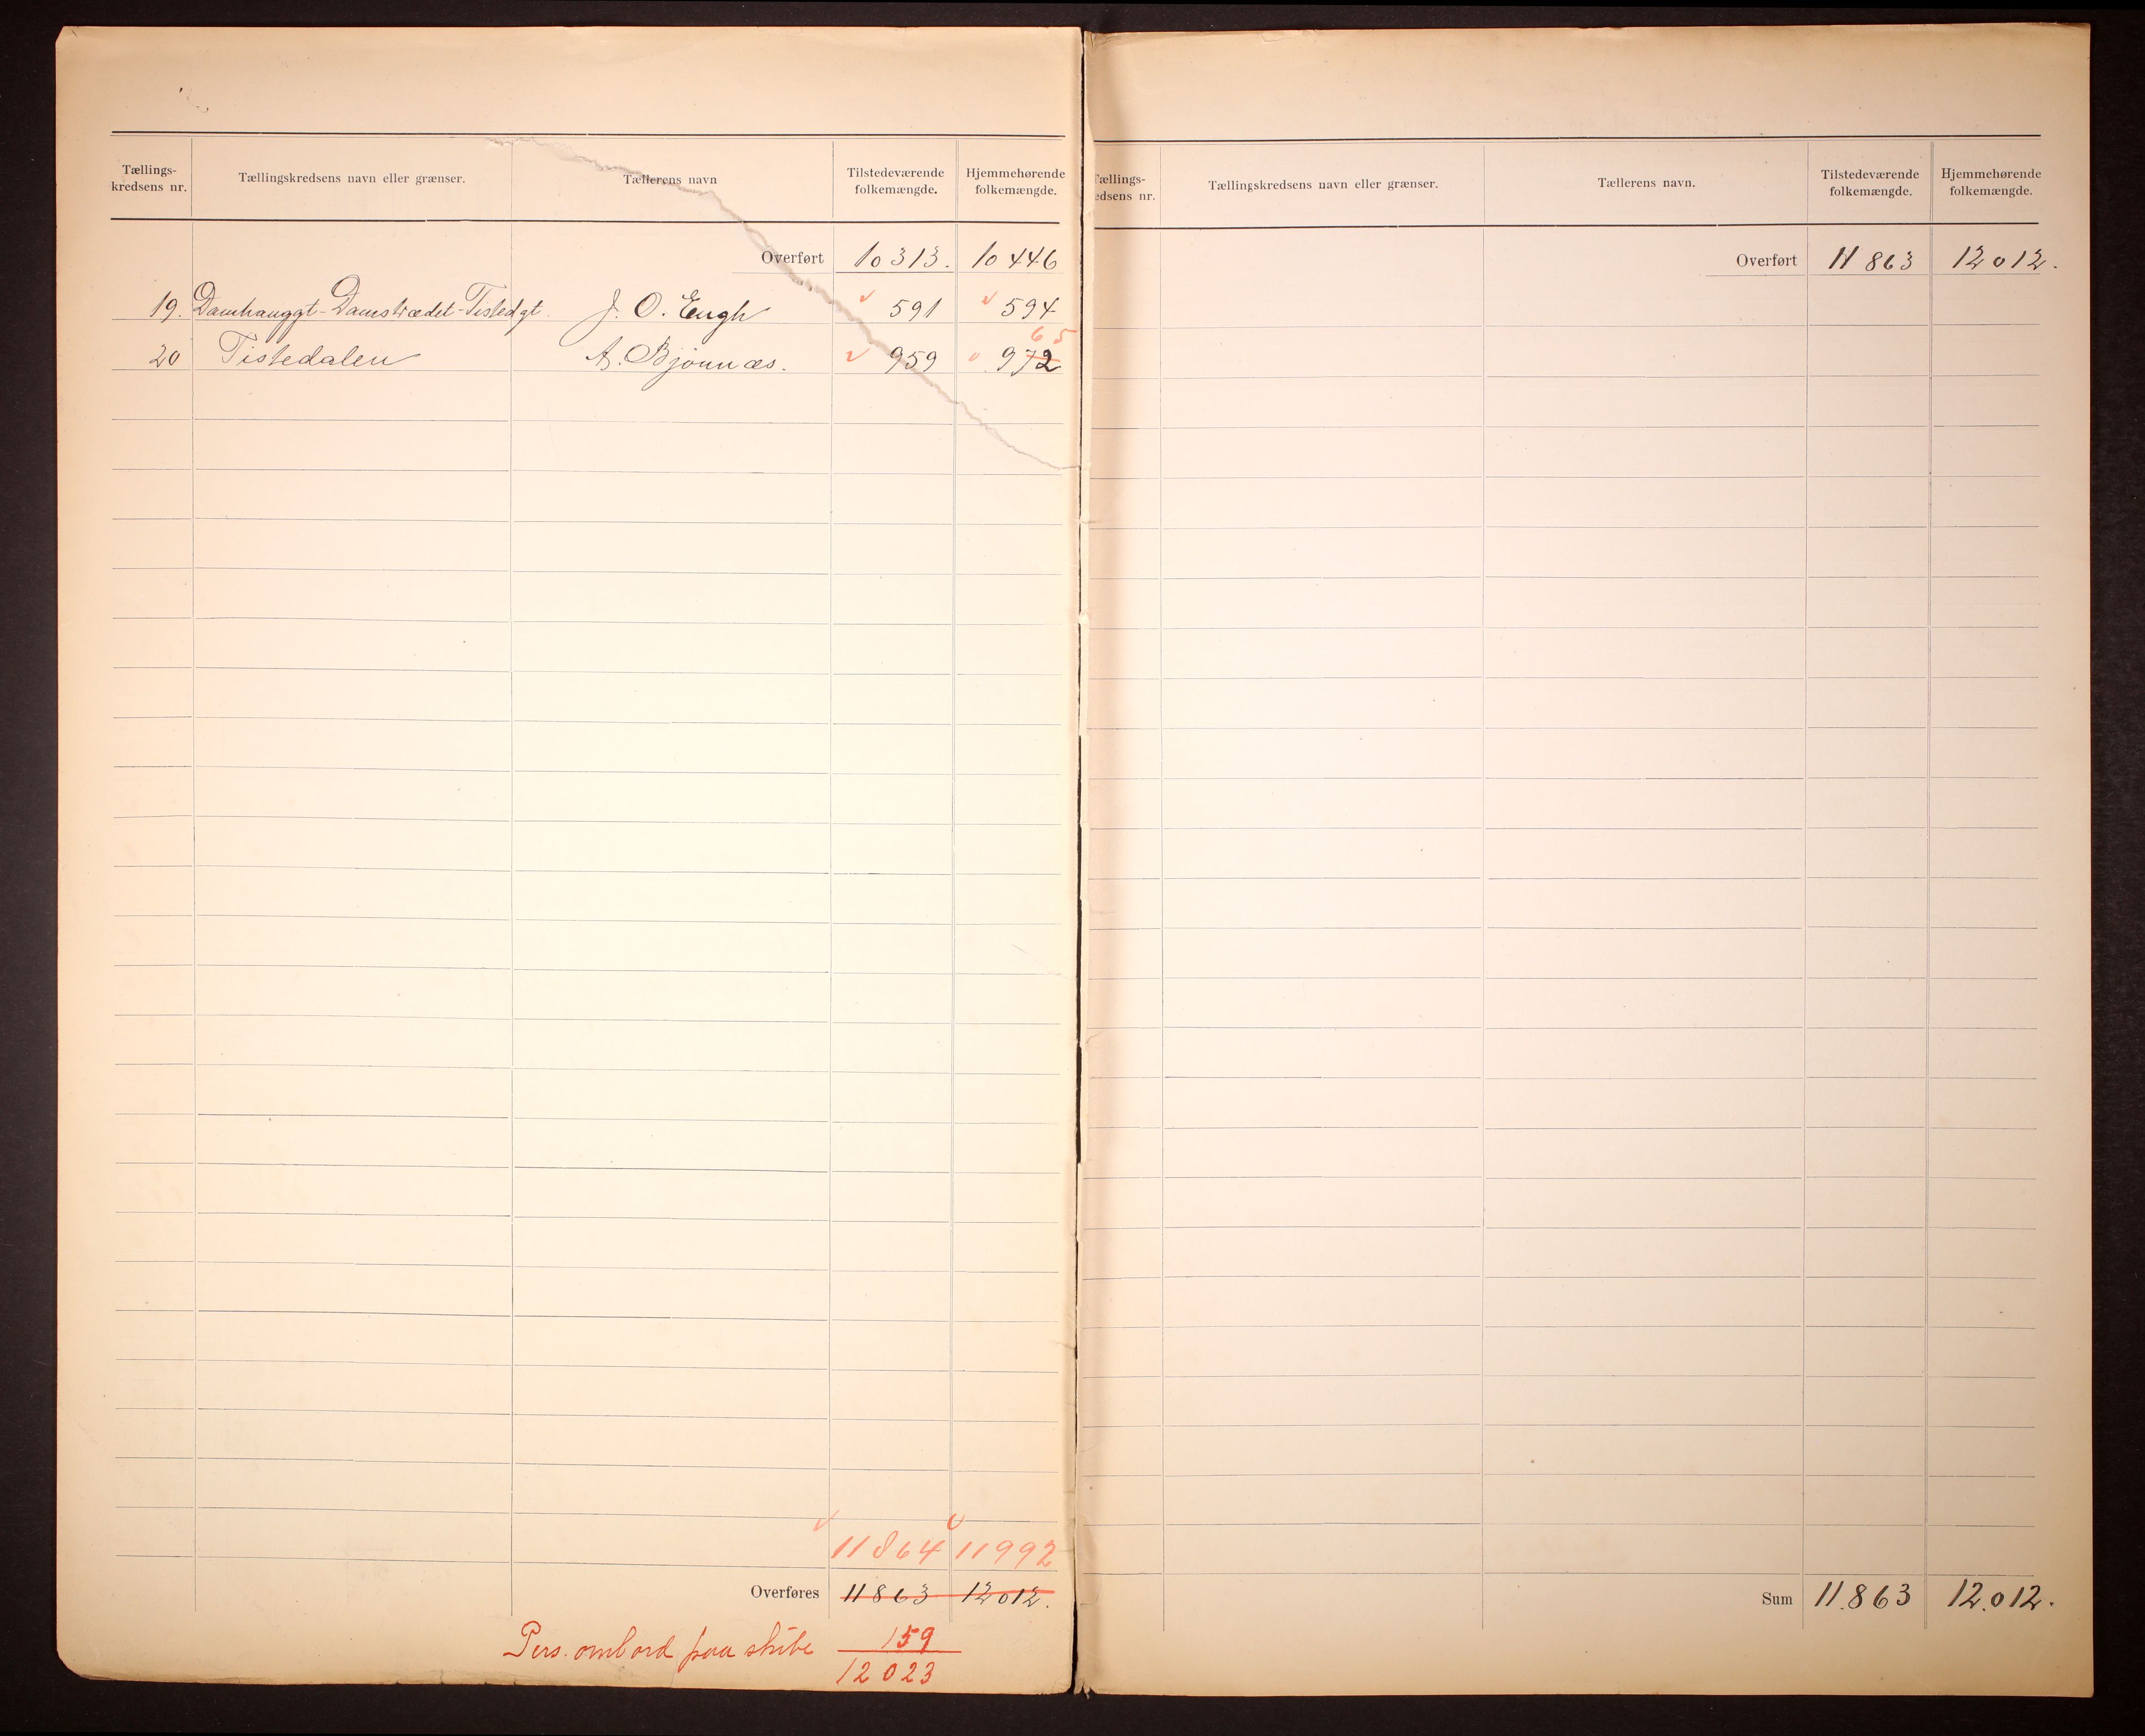 Tællings-
kredsens nr.
Tællingskredsens navn eller grænser.
Tællerens navn
Tilstedeværende
folkemængde.
Hjemmehørende
folkemængde.
Overført 10 313. 10 446
19. Damhauggt - Damstrædet - Tistedgt. J. O. Engh 591 594
65
20 Tistedalen A. Bjönnæs. 959 972
11864 11992
Overføres 11863 12012.
Pers. ombord paa skibe 159
12023
Tællings-
edsens nr.
Tællingskredsens navn eller grænser.
Tællerens navn.
Tilstedeværende
folkemængde.
Hjemmehørende
folkemængde.
Overført 11 863 12 012.
Sum 11.863 12.012.